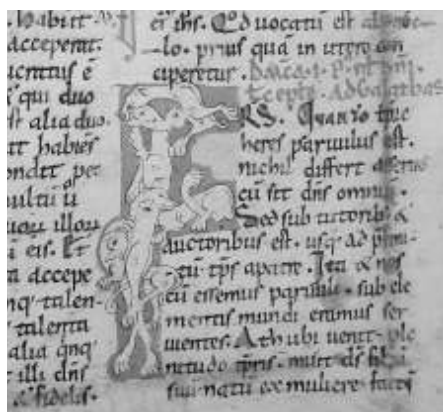 habuit
acceperat.
ucratus ē
qui duo
st alia duo.
tt habiēs
ondit pec
ultū u
illoru
i eis. Et
ta accepe
nq; talen-
talenta
alia qnq;
illi dns
& fidelis.
ei ihs. Qd uocatū est ab ange-
lo. prius quā in utero con
ciperetur.
ad Galathas
FRS. Quanto tpre
heres paruulus est.
nichil differt a seruo
cū sit dns omniū.
Sed sub tutoribus &
auctoribus est. usq; ad p̄fini-
tū tps a patre. Ita & nos
cū essemus paruuli. sub ele
mentis mundi eramus ser
uientes. At ubi uenit ple
nitudo tpris. misit ds filiū
suū natū ex muliere factū